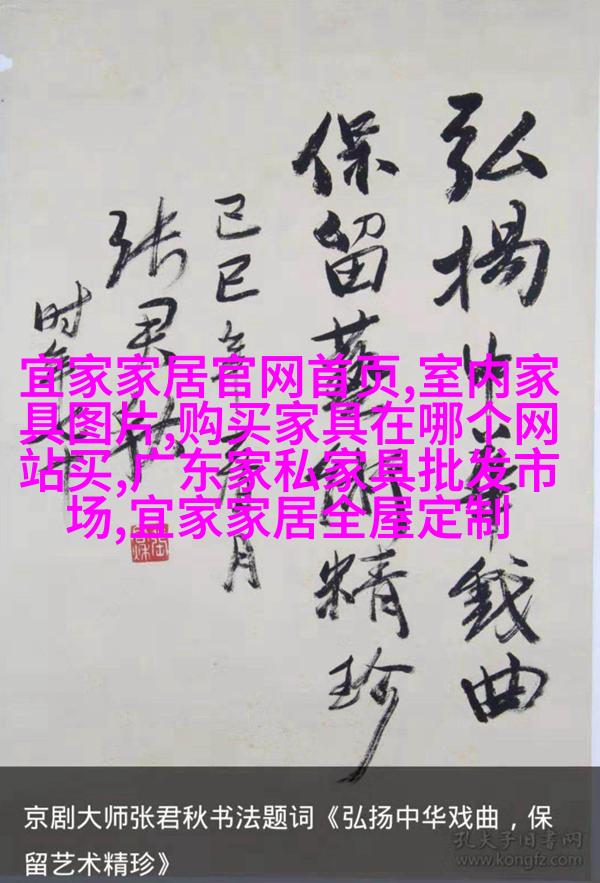 弘揚中華戏曲
保留藝術精珍
己巳年月
张君秋
时年
宜家家居官网首页,室内家
具图片,购买家具在哪个网
站买,广东家私家具批发市
场,宜家家居全屋定制
京剧大师张君秋书法题词《弘扬中华戏曲，保
留艺术精珍》
孔夫子旧书网
www.kongfz.com